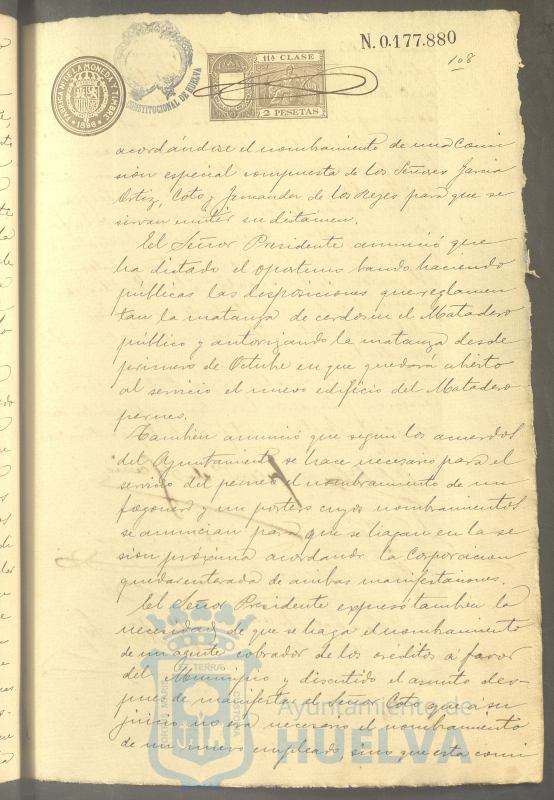 N.0.177.880
108
FABRICA N. DE LA MONEDA Y TIMBRE
1896
CONSTITUCIONAL DE HUELVA
11ª CLASE
2 PESETAS
acordándose el nombramiento de una comi
sión especial compuesta de los Señores Garcia
Ortiz, Coto y Fernandez de los Reyes para que se
sirvan emitir su dictámen.
El Señor Presidente anunció que
ha dictado el oportuno bando haciendo
públicas las disposiciones que reglamen
tan la matanza de cerdos en el Matadero
público y autorizando la matanza desde
primero de Octubre en que quedará abierto
al servicio el nuevo edificio del Matadero
perneo.
Tambien anunció que segun los acuerdos
del Ayuntamiento se hace necesario para el
servicio del perneo el nombramiento de un
fogonero y un portero cuyos nombramientos
se anuncian para que se hagan en la se
sion próxima acordando la Corporacion
quedar enterada de ambas manifestaciones.
El Señor Presidente expresó tambien la
necesidad de que se haga el nombramiento
de un agente cobrador de los créditos á favor
del Municipio y discutido el asunto des-
pues de manifestar el Señor Coto que á su
juicio no era necesario el nombramiento
de un nuevo empleado, sino que esta comi
Ayuntamiento de
HUELVA